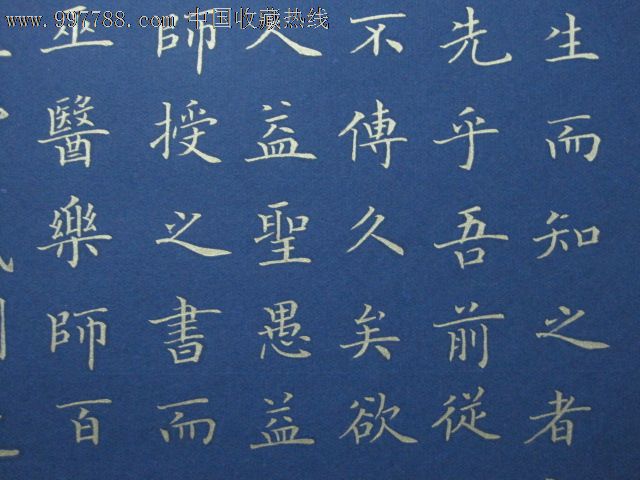 www.997788.com 中国收藏热线
生而知之者
先乎吾前從
不傳久矣欲
人益聖愚益
師授之書而
巫醫樂師百